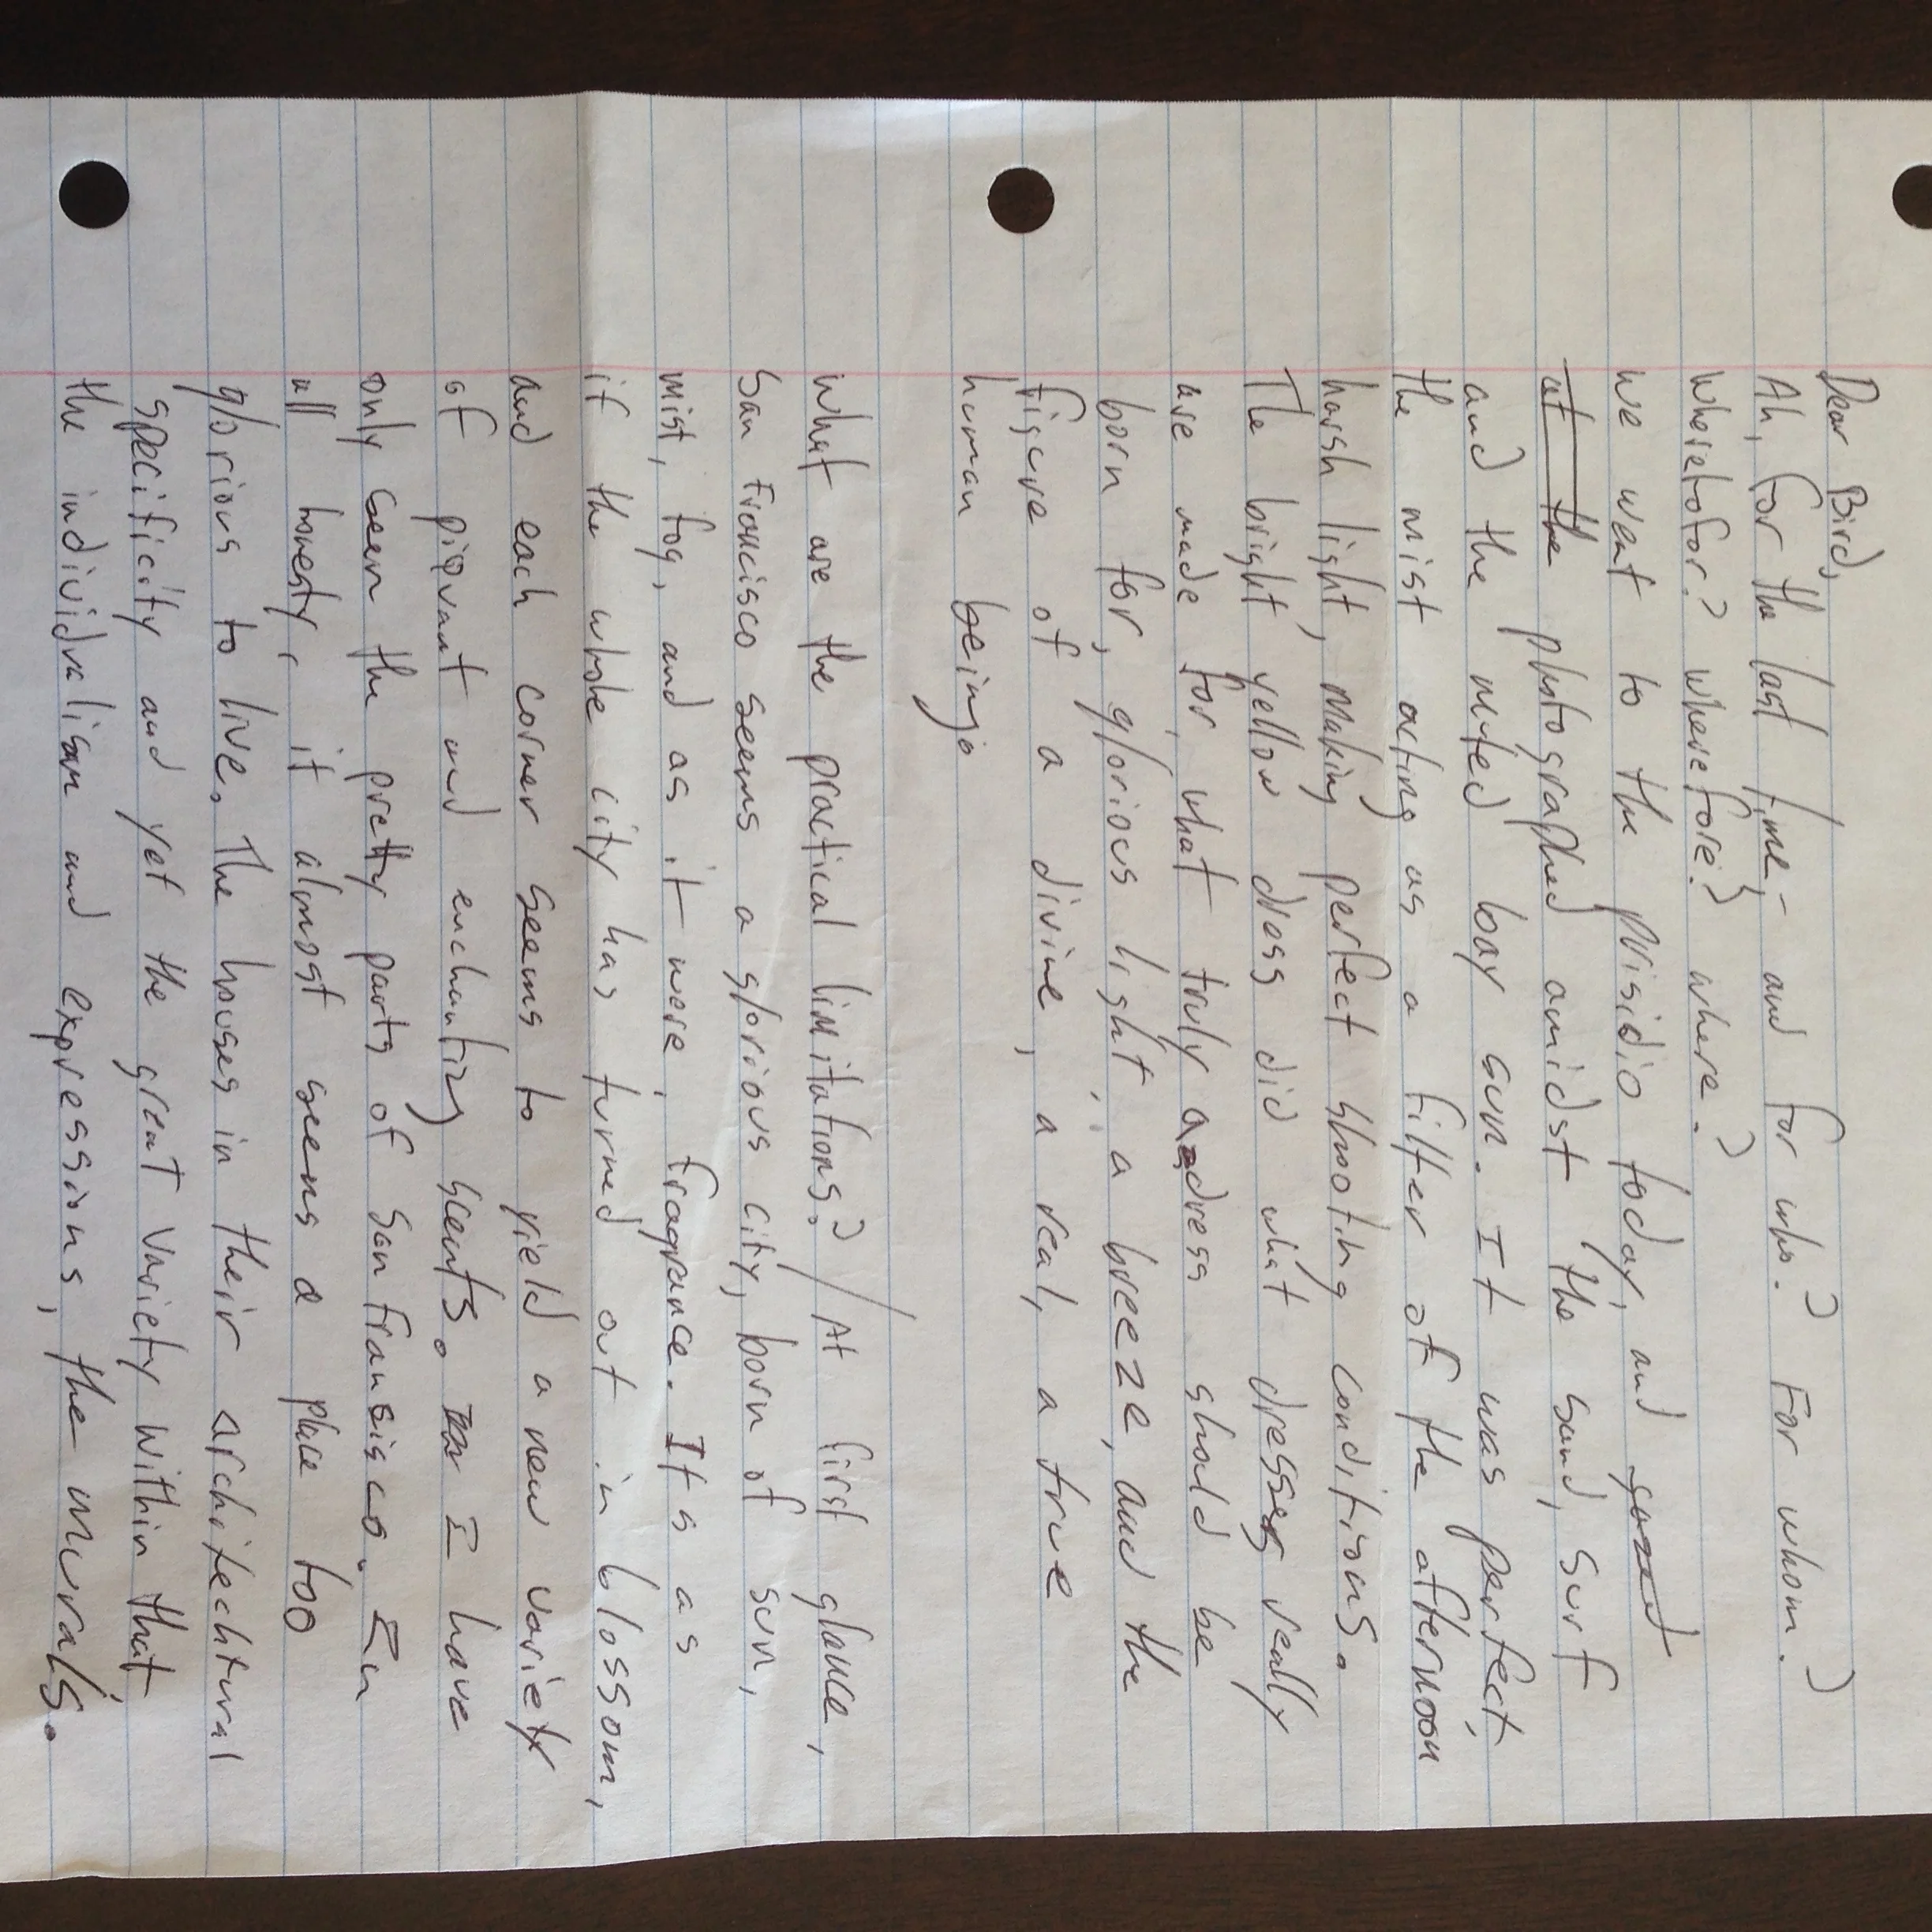 Dear Bird,
Ah, for the last time, - and for who? For whom?
Wherietofor? Wherefore? where?
we went to the prisidio today, and
photographed amidst the sand, surf
and the muted bay sun. It was perfect,
the mist acting as a filter of the afternoon
harsh light, making perfect shooting conditions.
The bright yellow dress did what dresses really
are made for, what truly a dress should be
born for, glorious light, a breeze, and the
figure of a divine, a real, a true
human being.
What are the practical limitations? / At first glance,
San Francisco seems a glorious city, born of sun,
mist, fog, and as it were, fragrance. Its as
if the whole city has turned out in blossom,
and each corner seems to yield a new variety
of piquant and enchanting scents. I have
only seen the pretty parts of San Fransisco. In
all honesty, it almost seems a place too
glorious to live. The houses in their architechtural
specificity and yet the great variety within that,
the individualism and expressions, the murals.